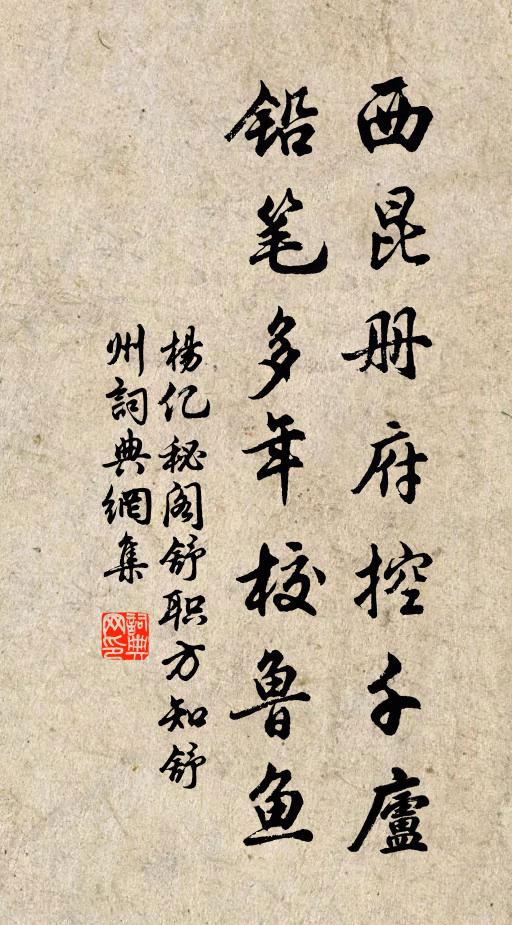 西昆册府控千廬
铅笔多年校鲁鱼
楊亿秘阁舒职方知舒
州詞典網集
詞典网印